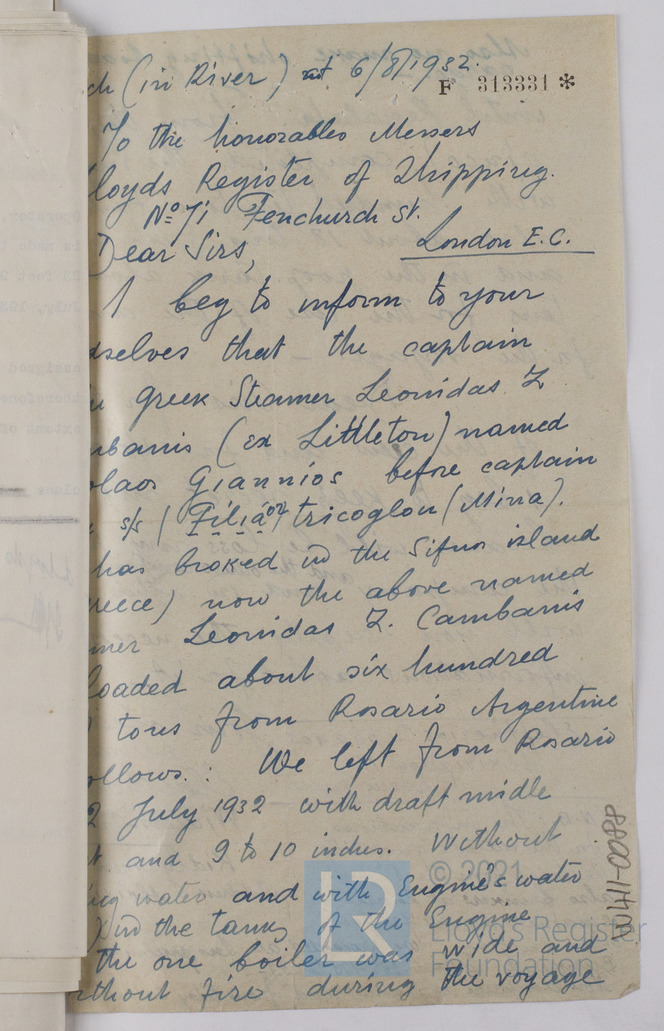 ch (in River) at 6/8/1932.
F 313331 *
To the honorables Messers
loyds Register of Shipping.
Nº 71 Fenchurch St.
London E.C.
Dear Sirs,
I beg to inform to your
dselves that the captain
greek Steamer Leonidas Z
mbanis (ex Littleton) named
olaos Giannios before captain
s/s (Filia tricoglou (Mina).
has broked in the Sifnos island
reece) now the above named
mer Leonidas Z. Cambanis
loaded about six hundred
tons from Rosario Argentine
ollows.: We left from Rosario
2 July 1932 with draft midle
t and 9 to 10 inches. Without
ng water and with Engine's water
) in the tanks of the Engine
the one boiler was wide and
thout fire during the voyage
W411-0088
LR
© 2021
Lloyd's Register
Foundation